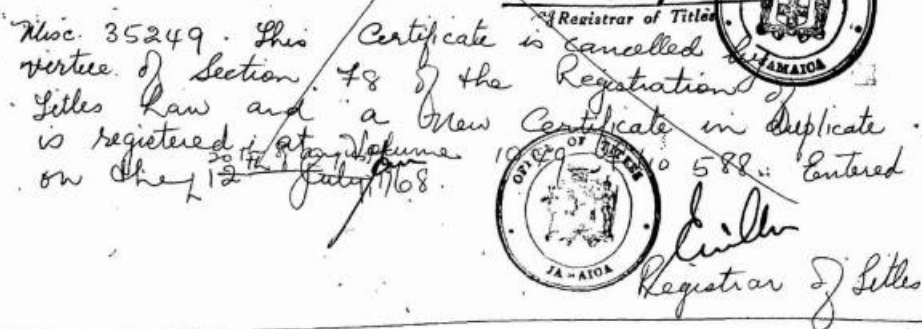 Registrar of Titles
JAMAICA
Misc. 35249. This Certificate is cancelled by
virtue of Section 78 of the Registration of
Titles Law and a New Certificate in duplicate
is registered at Volume 588. Entered
on the 12 July 1968.
OFFICE OF TITLES
JAMAICA
Registrar of Titles